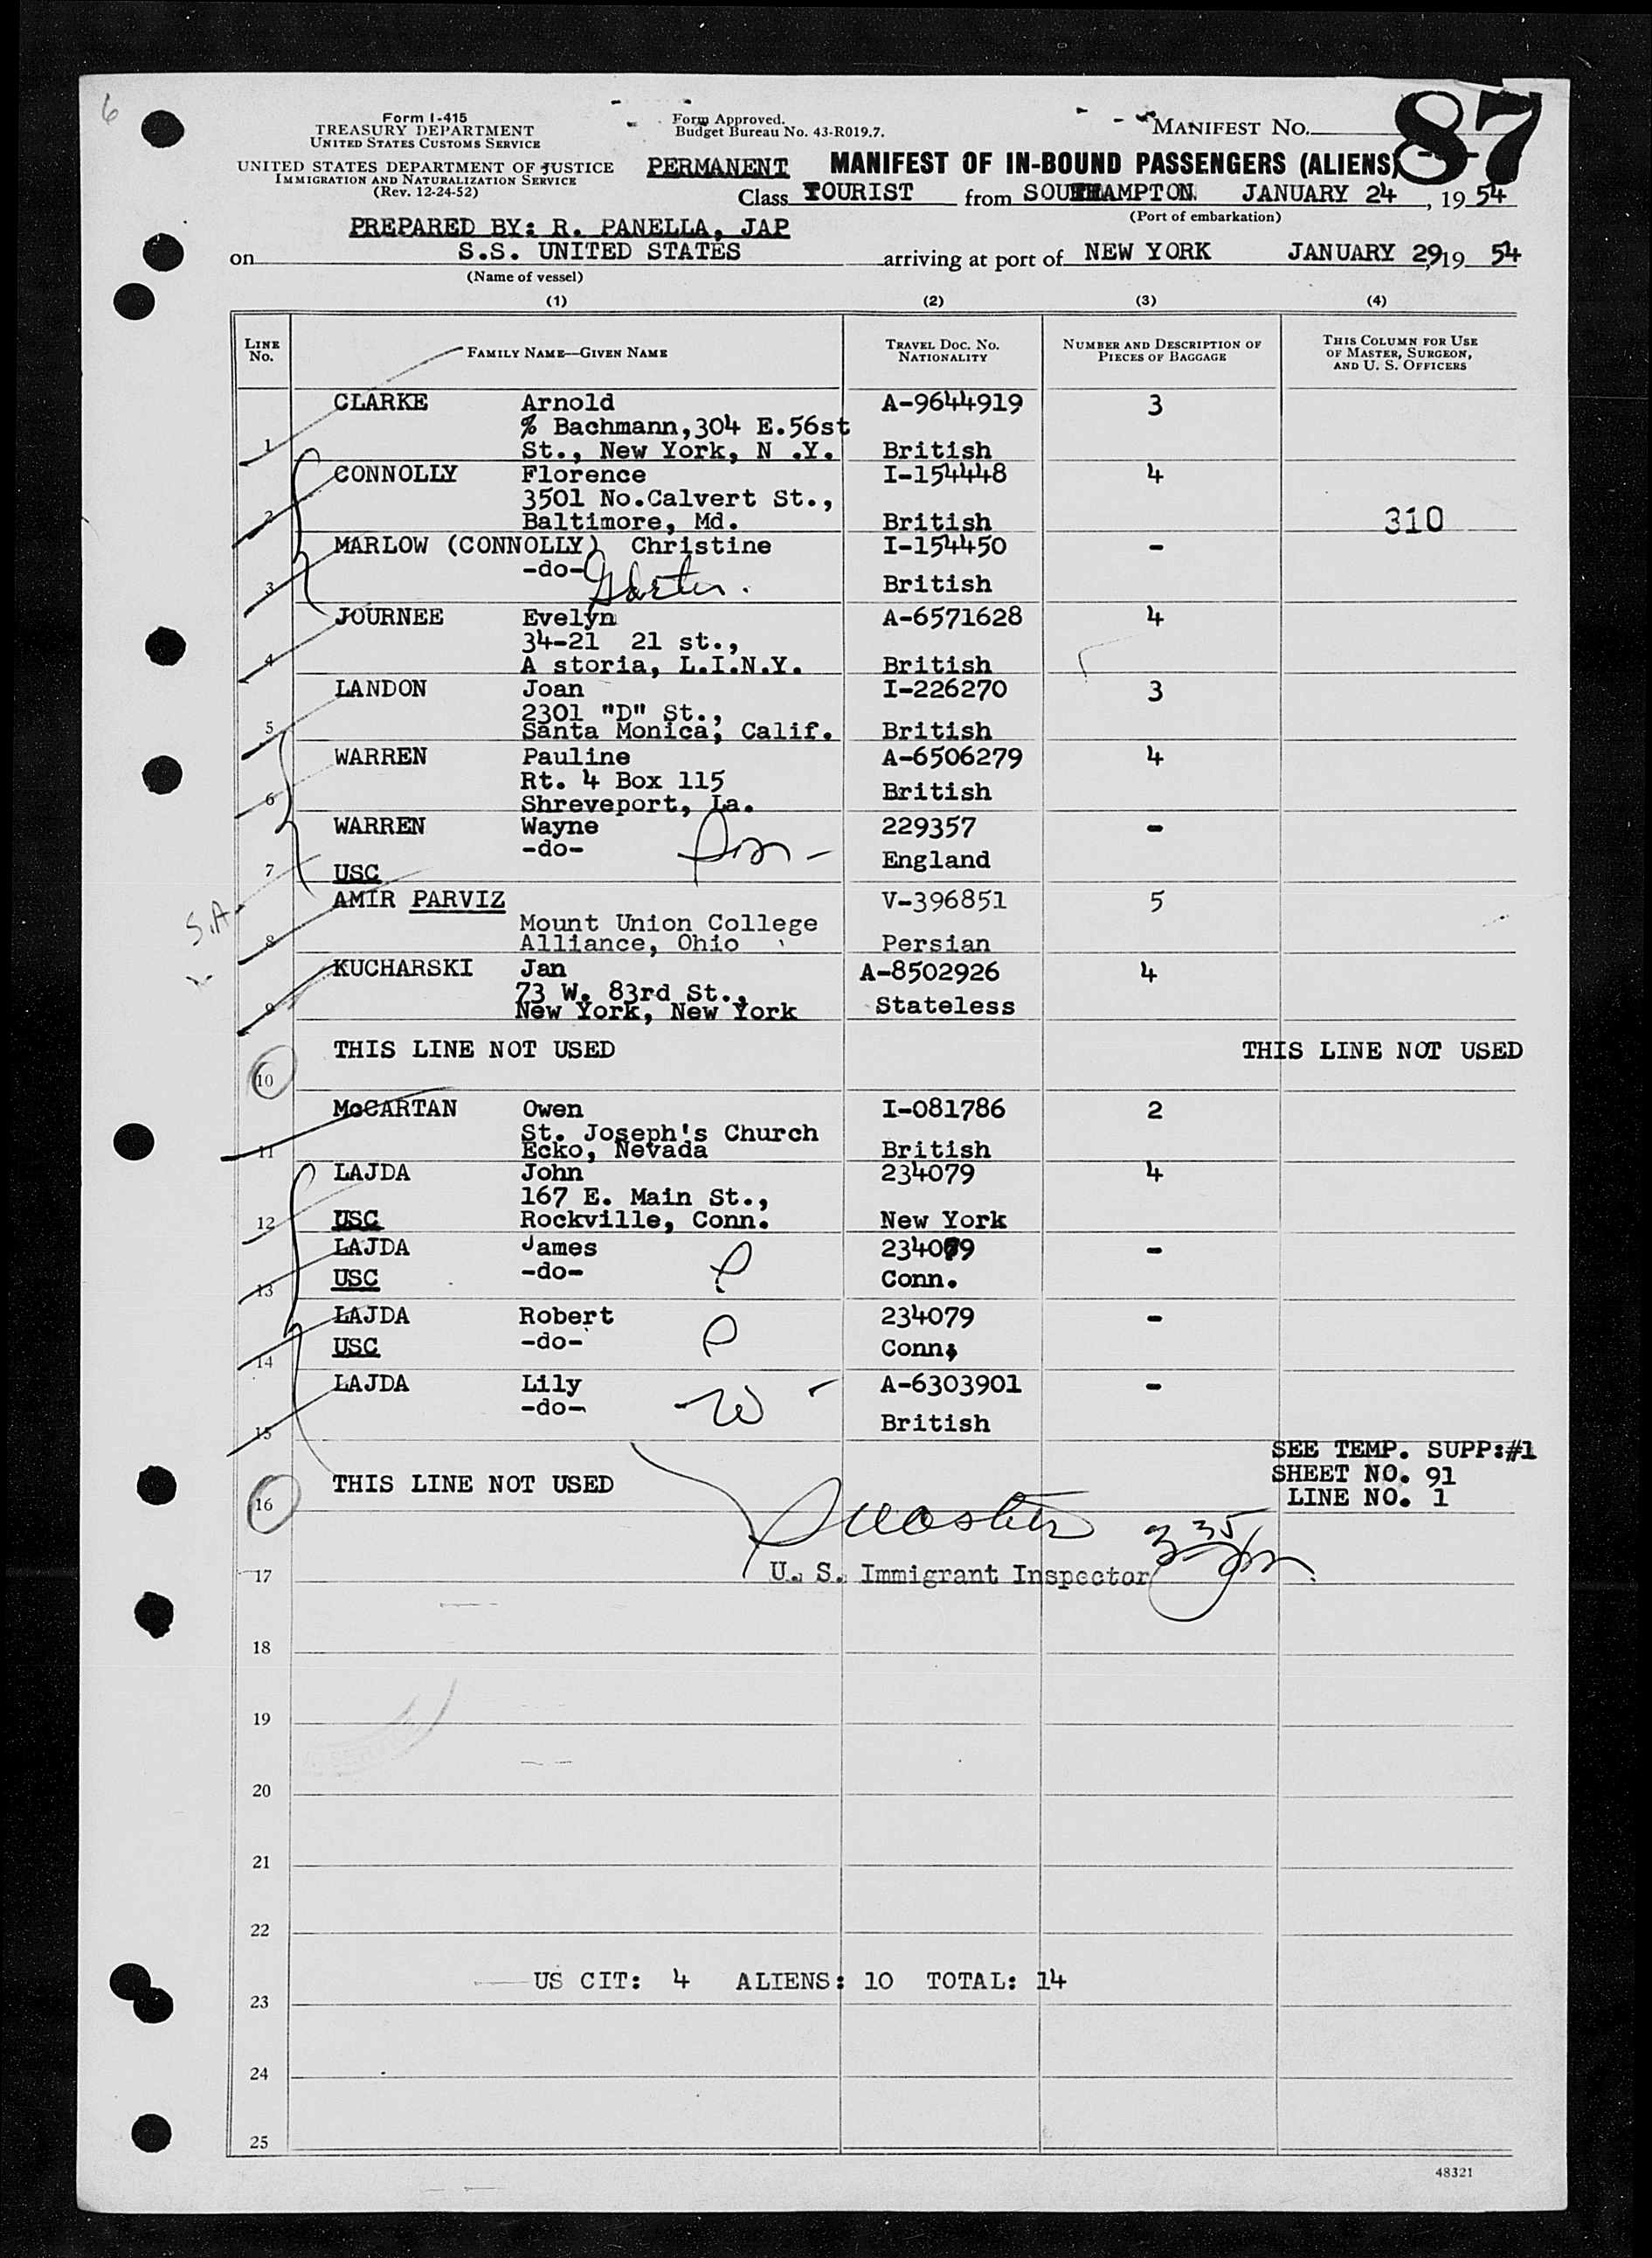 6
Form I-415
TREASURY DEPARTMENT
UNITED STATES CUSTOMS SERVICE
UNITED STATES DEPARTMENT OF JUSTICE
IMMIGRATION AND NATURALIZATION SERVICE
(Rev. 12-24-52)
Form Approved.
Budget Bureau No. 43-R019.7.
MANIFEST NO. 87
PERMANENT MANIFEST OF IN-BOUND PASSENGERS (ALIENS)
Class TOURIST from SOUTHAMPTON JANUARY 24, 1954
(Port of embarkation)
PREPARED BY: R. PANELLA, JAP
on S.S. UNITED STATES arriving at port of NEW YORK JANUARY 29, 19 54
(Name of vessel)
(1) (2) (3) (4)
LINE No.
FAMILY NAME—GIVEN NAME
TRAVEL DOC. NO. NATIONALITY
NUMBER AND DESCRIPTION OF PIECES OF BAGGAGE
THIS COLUMN FOR USE OF MASTER, SURGEON, AND U. S. OFFICERS
CLARKE Arnold A-9644919 3
% Bachmann,304 E.56st
1 St., New York, N .Y. British
CONNOLLY Florence I-154448 4
3501 No.Calvert St.,
2 Baltimore, Md. British 310
MARLOW (CONNOLLY) Christine I-154450 -
-do-
3 British
JOURNEE Evelyn A-6571628 4
34-21 21 st.,
4 A storia, L.I.N.Y. British
LANDON Joan I-226270 3
2301 "D" St.,
5 Santa Monica, Calif. British
WARREN Pauline A-6506279 4
Rt. 4 Box 115
6 Shreveport, La. British
WARREN Wayne 229357 -
-do- Son - England
7 USC
AMIR PARVIZ V-396851 5
S.A. Mount Union College
8 Alliance, Ohio Persian
KUCHARSKI Jan A-8502926 4
73 W. 83rd St.,
9 New York, New York Stateless
THIS LINE NOT USED THIS LINE NOT USED
10
McCARTAN Owen I-081786 2
St. Joseph's Church
11 Ecko, Nevada British
LAJDA John 234079 4
167 E. Main St.,
12 USC Rockville, Conn. New York
LAJDA James 234079 -
-do-
13 USC Conn.
LAJDA Robert 234079 -
-do-
14 USC Conn.
LAJDA Lily A-6303901 -
-do- W -
15 British
SEE TEMP. SUPP:#1
SHEET NO. 91
LINE NO. 1
THIS LINE NOT USED
16
3 35 pm
17 U. S. Immigrant Inspector
18
19
20
21
22
US CIT: 4 ALIENS: 10 TOTAL: 14
23
24
25
48321